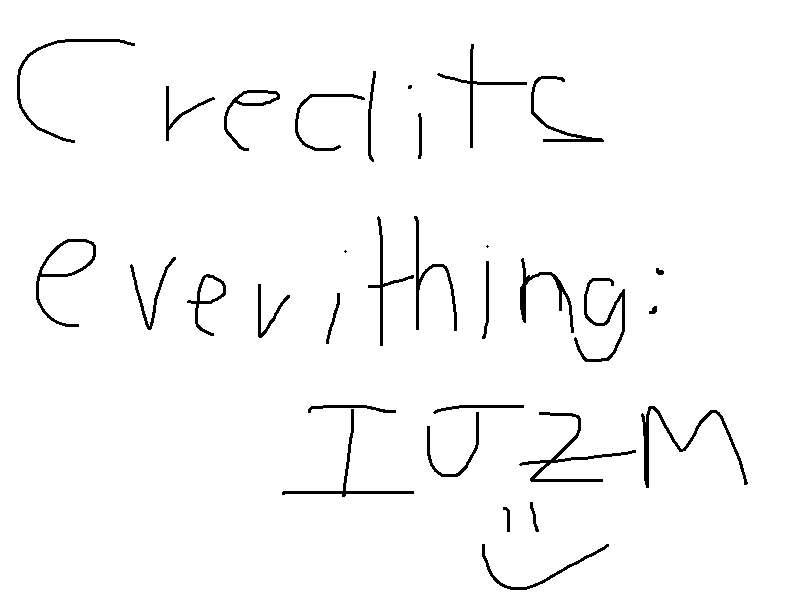 Credits
everithing:
IJZM